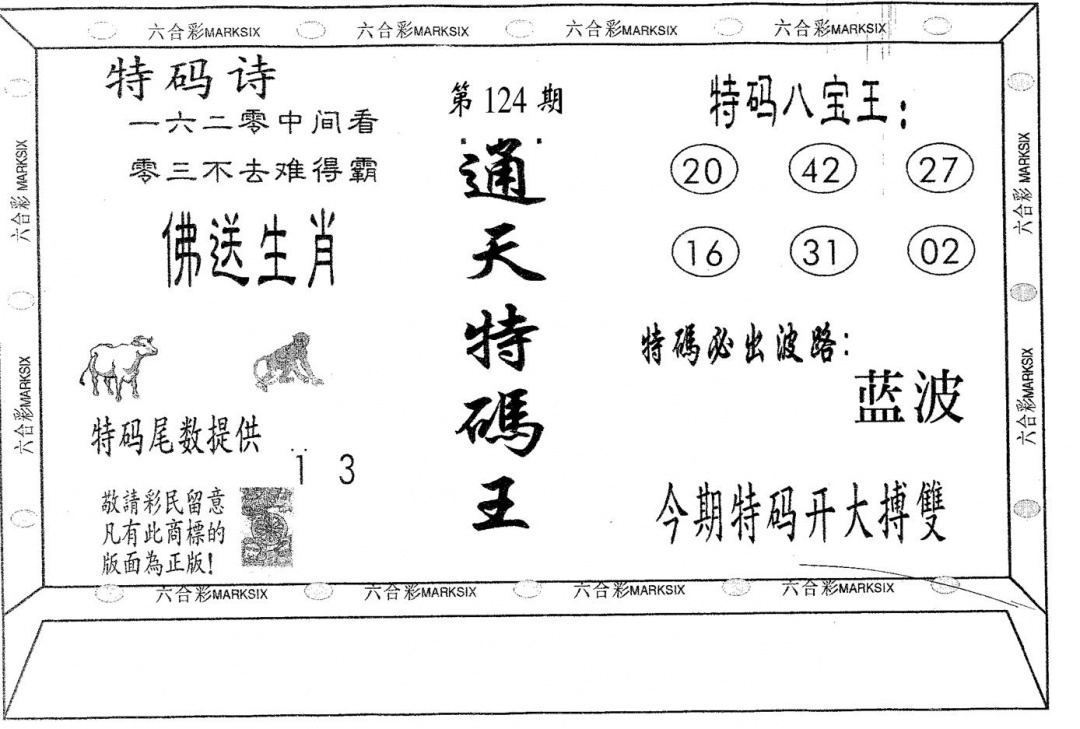 六合彩MARKSIX 六合彩MARKSIX 六合彩MARKSIX 六合彩MARKSIX
六合彩 MARKSIX
六合彩MARKSIX
特码诗
一六二零中间看
零三不去难得霸
佛送生肖
特码尾数提供:
1 3
敬請彩民留意
凡有此商標的
版面為正版!
第 124 期
通天特碼王
特码八宝王:
20 42 27
16 31 02
特碼必出波路:
蓝波
今期特码开大搏雙
六合彩 MARKSIX
六合彩MARKSIX
六合彩MARKSIX 六合彩MARKSIX 六合彩MARKSIX 六合彩MARKSIX